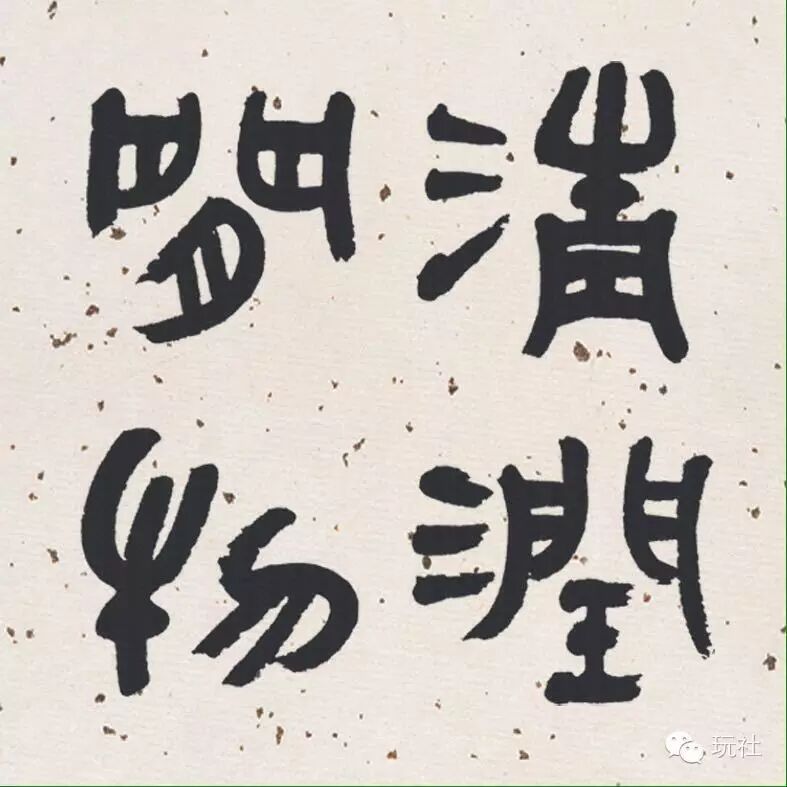 清潤
閒物
玩社